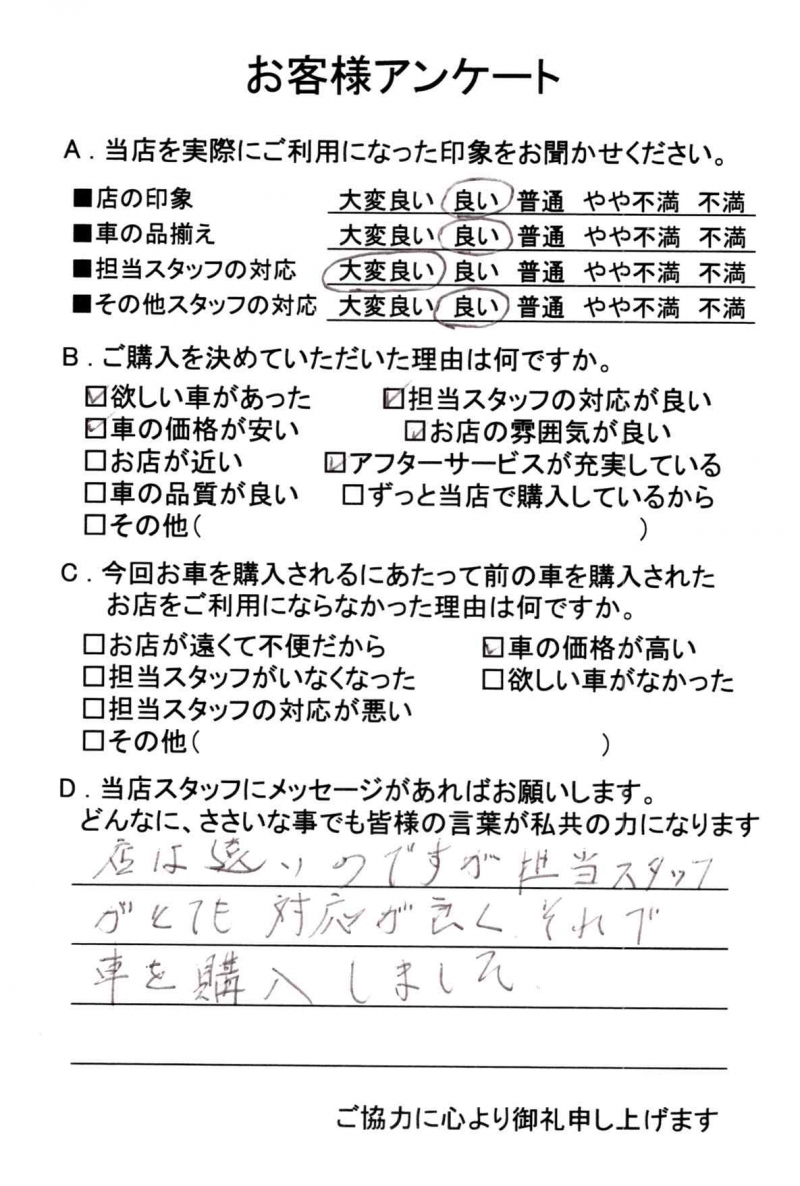 お客様アンケート
A．当店を実際にご利用になった印象をお聞かせください。
■店の印象 大変良い 良い 普通 やや不満 不満
■車の品揃え 大変良い 良い 普通 やや不満 不満
■担当スタッフの対応 大変良い 良い 普通 やや不満 不満
■その他スタッフの対応 大変良い 良い 普通 やや不満 不満
B．ご購入を決めていただいた理由は何ですか。
☑欲しい車があった ☑担当スタッフの対応が良い
☑車の価格が安い ☑お店の雰囲気が良い
□お店が近い ☑アフターサービスが充実している
□車の品質が良い □ずっと当店で購入しているから
□その他( )
C．今回お車を購入されるにあたって前の車を購入された
お店をご利用にならなかった理由は何ですか。
□お店が遠くて不便だから ☑車の価格が高い
□担当スタッフがいなくなった □欲しい車がなかった
□担当スタッフの対応が悪い
□その他( )
D．当店スタッフにメッセージがあればお願いします。
どんなに、ささいな事でも皆様の言葉が私共の力になります
店は遠いのですが担当スタッフ
がとても対応が良く、それで
車を購入しました。
ご協力に心より御礼申し上げます